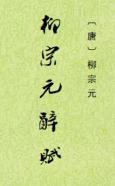 〔唐〕柳宗元
柳宗元辭賦